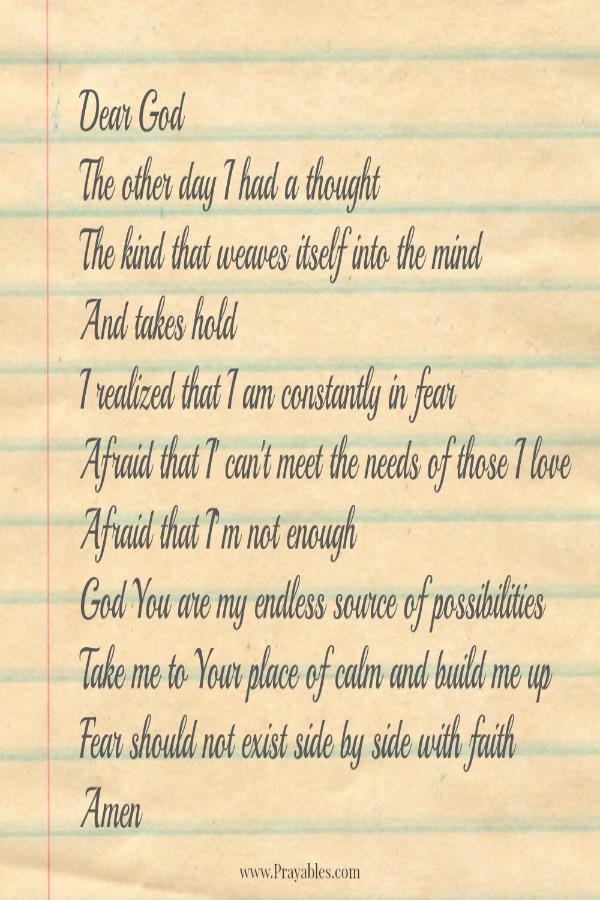 Dear God
The other day I had a thought
The kind that weaves itself into the mind
And takes hold
I realized that I am constantly in fear
Afraid that I' can't meet the needs of those I love
Afraid that I'm not enough
God You are my endless source of possibilities
Take me to Your place of calm and build me up
Fear should not exist side by side with faith
Amen
www.Prayables.com